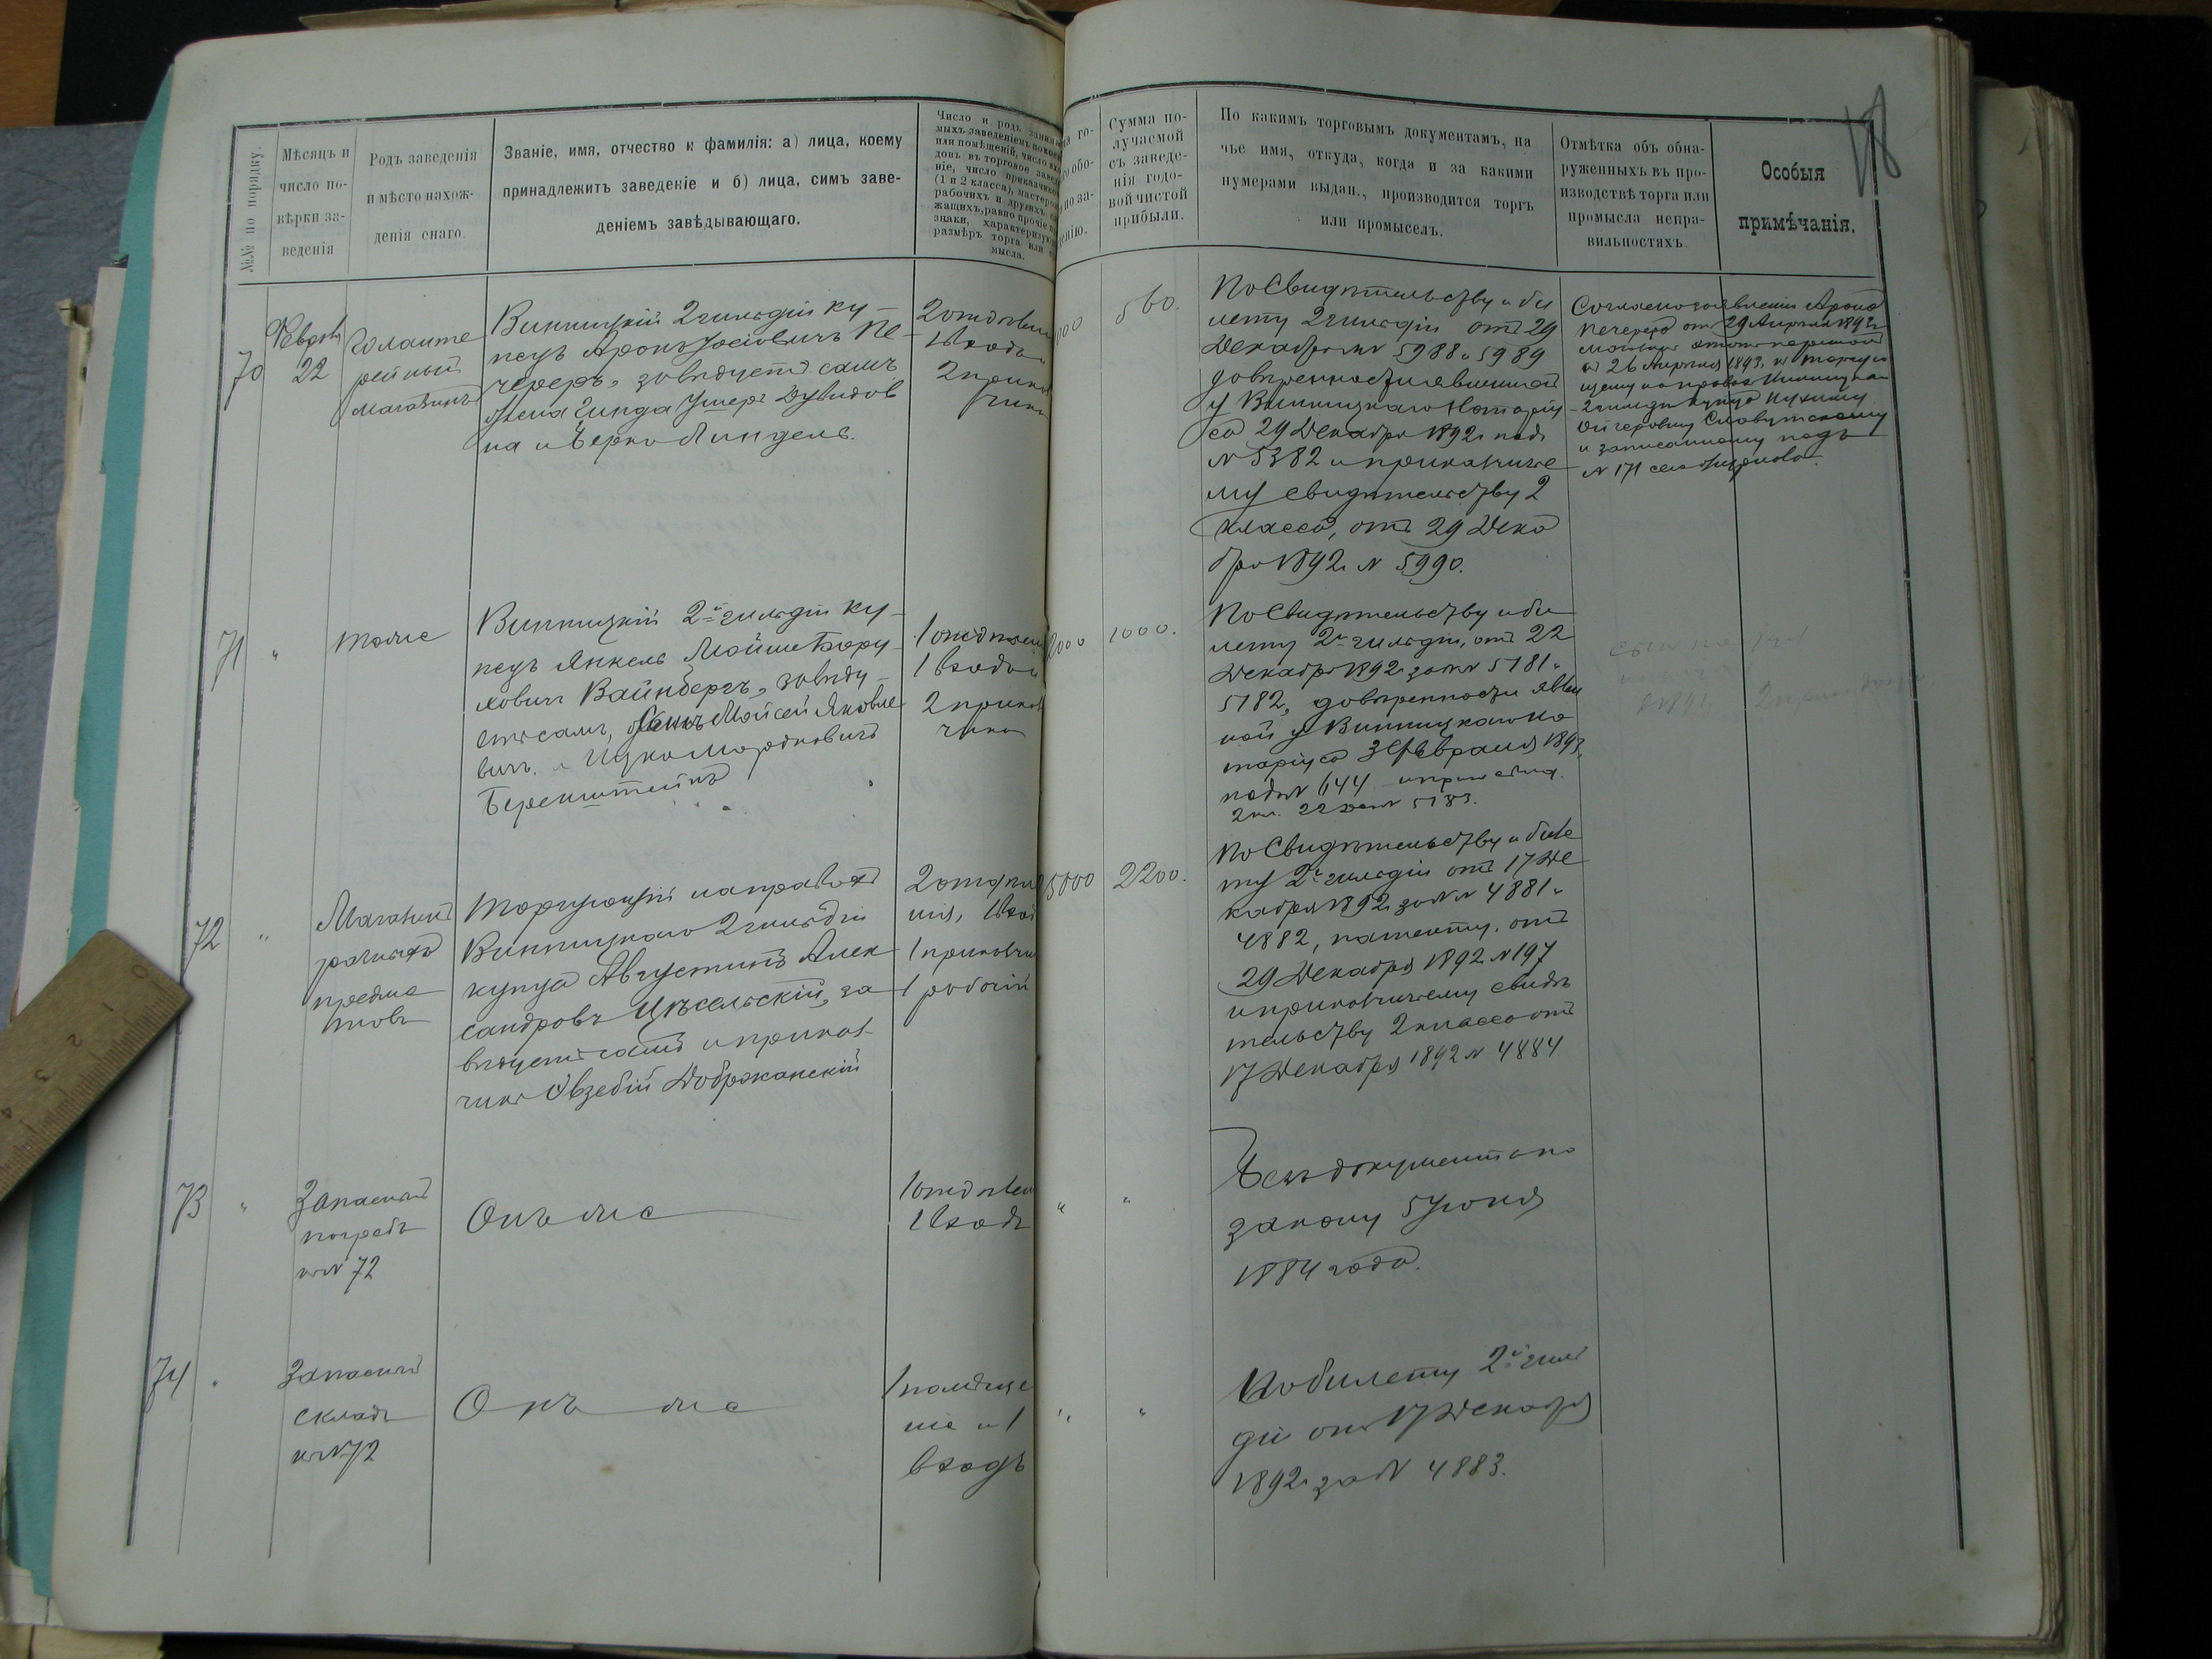 №№ по порядку.
Мѣсяцъ и
число по-
вѣрки за-
веденія
Родъ заведенія
и мѣсто нахож-
денія онаго.
Званіе, имя, отчество и фамилія: а) лица, коему
принадлежитъ заведеніе и б) лица, симъ заве-
деніемъ завѣдывающаго.
Число и родъ
мыхъ заведеніемъ
или помѣщеній, число
довъ въ торговое
ніе, число
(1 и 2 класса),
рабочихъ и другихъ
жащихъ, равно прочіе
знаки,
размѣръ торга или
мысла.
Сумма по-
лучаемой
съ заведе-
нія годо-
вой чистой
прибыли.
По какимъ торговымъ документамъ, на
чье имя, откуда, когда и за какими
нумерами выдан., производится торгъ
или промыселъ.
Отмѣтка объ обна-
руженныхъ въ про-
изводствѣ торга или
промысла непра-
вильностяхъ.
Особыя
примѣчанія.
70
22
Галанте
рейный
Магазинъ
Винницкій 2 гильдіи ку-
пецъ Аронъ Іосіовичъ Пе-
череръ, завѣдуетъ самъ
жена Гинда Ушеръ Дувидов
на и Берко Линдель.
2
1 входъ
2 приказ
чика
560.
По Свидѣтельству и би
лету 2 гильдіи отъ 29
Декабря №№ 5988 и 5989
довѣренности явленной
у Винницкаго Нотаріу
са 29 Декабря 1892 г. подъ
№ 5382 и приказчиче
му свидѣтельству 2
класса, отъ 29 Дека
бря 1892 г. № 5990.
Согласно заявленію Арона
Печерера отъ 29 Апрѣля 1893 г.
26 Апрѣля 1893 г. къ торгую
щему на правах Винницкаго
2 гильдіи купца
Славутскому
и записанному подъ
№ 171 сего
71
"
тоже
Винницкій 2й гильдіи ку-
пецъ Янкель Мойше Бору
ховичъ Вайнбергъ, завѣду-
етъ самъ, сынъ Мойсей Яковле
вичъ и Ицко Мордковичъ
Беренштейнъ
1 отдѣлен
1 входъ
2 приказ
чика
1000.
По Свидѣтельству и би
лету 2й гильдіи, отъ 22
Декабря 1892 г. за №№ 5181 и
5182, довѣренности явлен
ной у Винницкаго Но
таріуса 3 Февраля 1893 г.
подъ № 644 и
2 кл. 22 Дек № 5183.
72
"
Магазинъ
разныхъ
предме
товъ
Торгующій на правахъ
Винницкаго 2 гильдіи
купца Августинъ Алек
сандровъ Цѣсельскій, за
вѣдуетъ самъ и приказ
чикъ Овзебій Добржанскій
2 отдѣле
нія, 1 вход
1 приказчик
1 рабочій
2200.
По Свидѣтельству и биле
ту 2й гильдіи отъ 17 Де
кабря 1892 г. за №№ 4881 и
4882, патенту, отъ
29 Декабря 1892 № 197
и приказчичему свидѣ
тельству 2 класса отъ
17 Декабря 1892 № 4884
73
"
Запасный
погребъ
къ № 72
Онъ же
1 отдѣлен
1 входъ
"
"
Безъ документа по
закону 5 Іюня
1884 года.
74
"
Запасный
складъ
къ № 72
Онъ же
1 помѣще
ніе и 1
входъ
"
"
По билету 2й гиль
діи отъ 17 Декабря
1892 г. за № 4883.